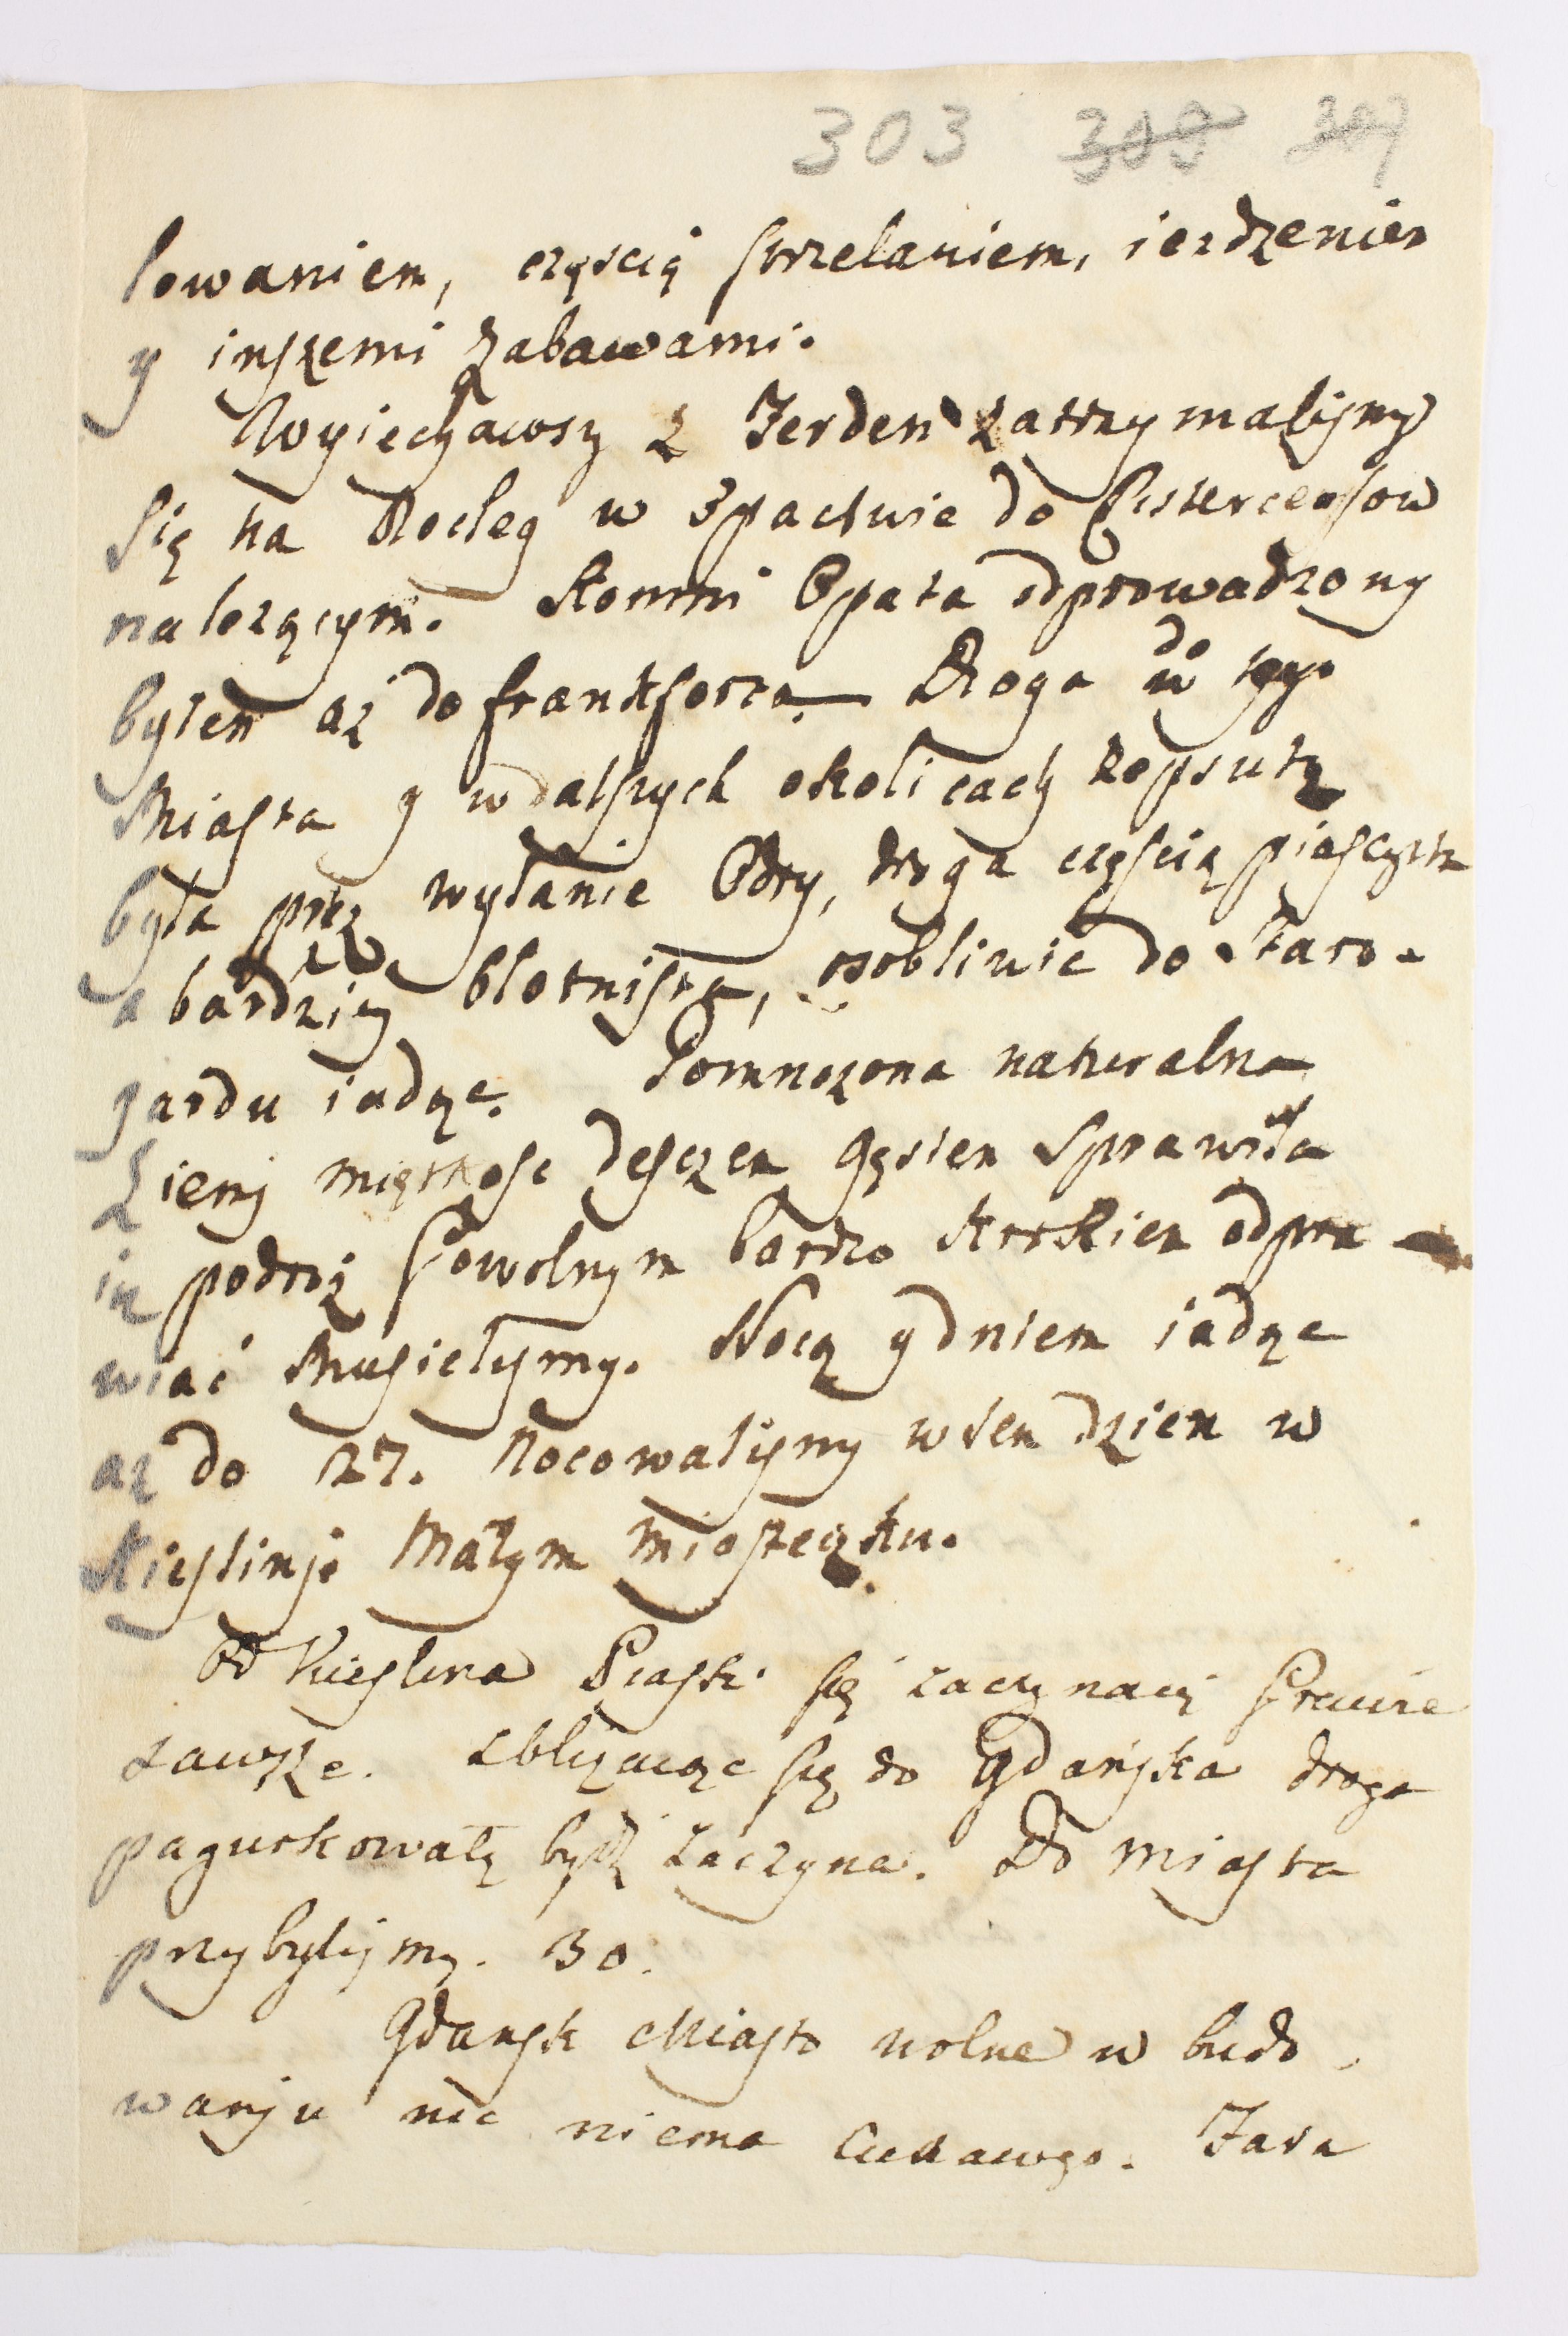 303 309 307
lowaniem, częscią strzelaniem, iezdzeniem
y inszemi zabawami.
Wyiechawszy z Jerden zatrzymalismy
się na Nocleg w Opactwie do Cystercensow
nalezącym. Konmi Opata odprowadzony
byłem aż do frankforta. Droga do w tego
Miasta y w dalszych okolicach zepsuta
była prez wylanie Odry, droga częscią piasczysta
a bardziey błotnista, osobliwie do Staro-
gardu iadąc. Pomnozona naturalna
Ziemi miętkosc deszczem gęstem sprawiła
iz podroż powolnym bardzo krokiem odpra-
wiać Musielismy. Nocą y dniem iadąc
aż do 27. Nocowalismy w ten dzien w
Kieslinie Małym miasteczku.
Od Kieslina Piaski się zaczynaią prawie
zawsze. zbliżaiąc się do Gdańska droga
pagurkowatą bydź zaczyna. Do miasta
przybylismy. 30.
Gdansk Miasto wolne w budo-
waniu nic niema ciekawego. Fara